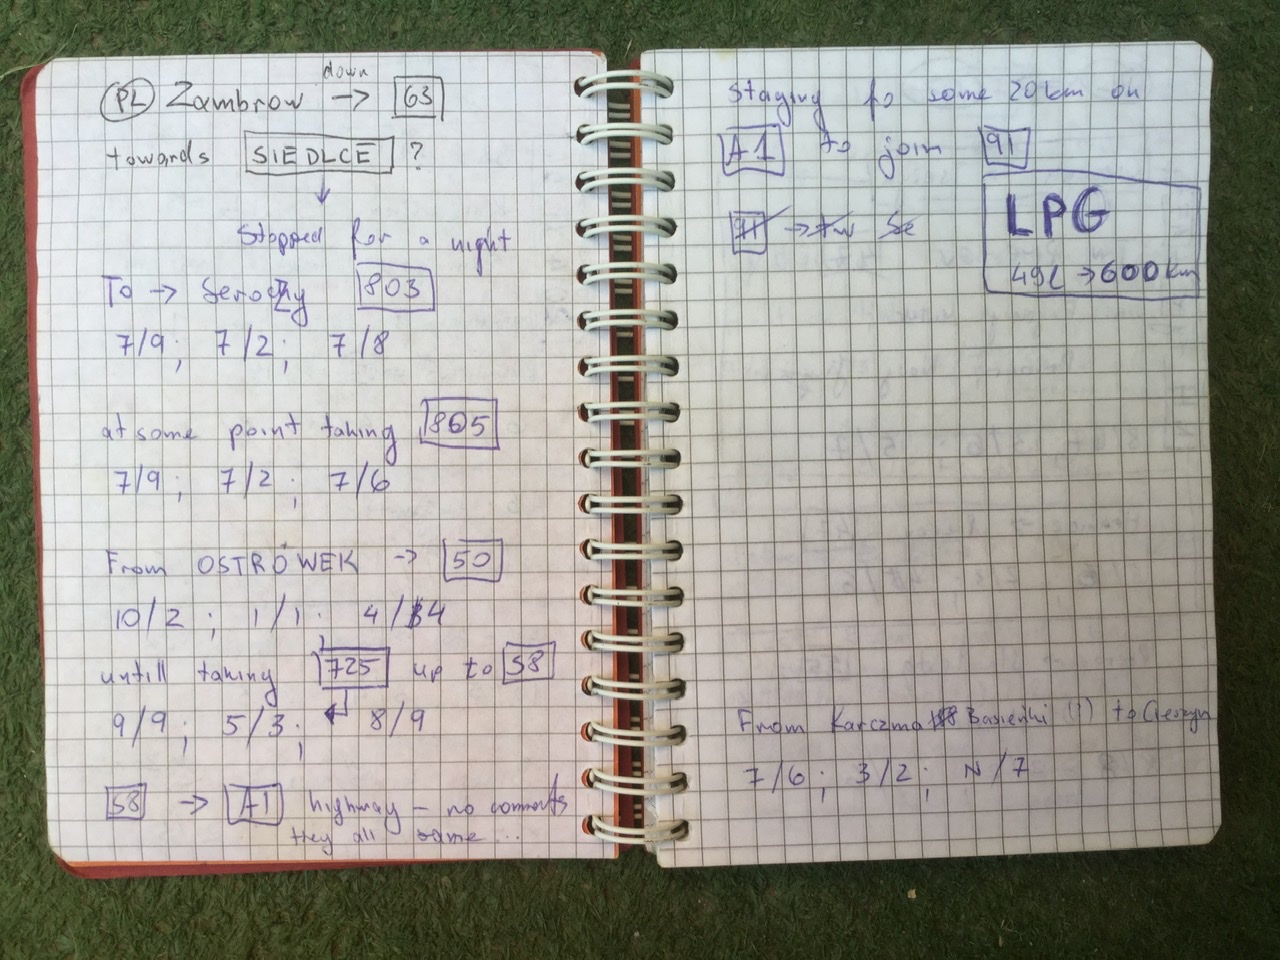 PL Zambrow down → 63
towards SIEDLCE ?
↓
Stopped for a night
To → Seroczy 803
7/9 ; 7/2 ; 7/8
at some point taking 805
7/9 ; 7/2 ; 7/6
From OSTRÓWEK → 50
10/2 ; 1/1 ; 4/4
untill taking 725 up to S8
9/9 ; 5/3 ; 8/9
S8 → A1 highway – no comments
they all same ...
Staying fo some 20 km on
A1 to join 91
91 →
LPG
49L → 600 km
From Karczma Basieńki (!) to Cieszyn
7/6 ; 3/2 ; N/7